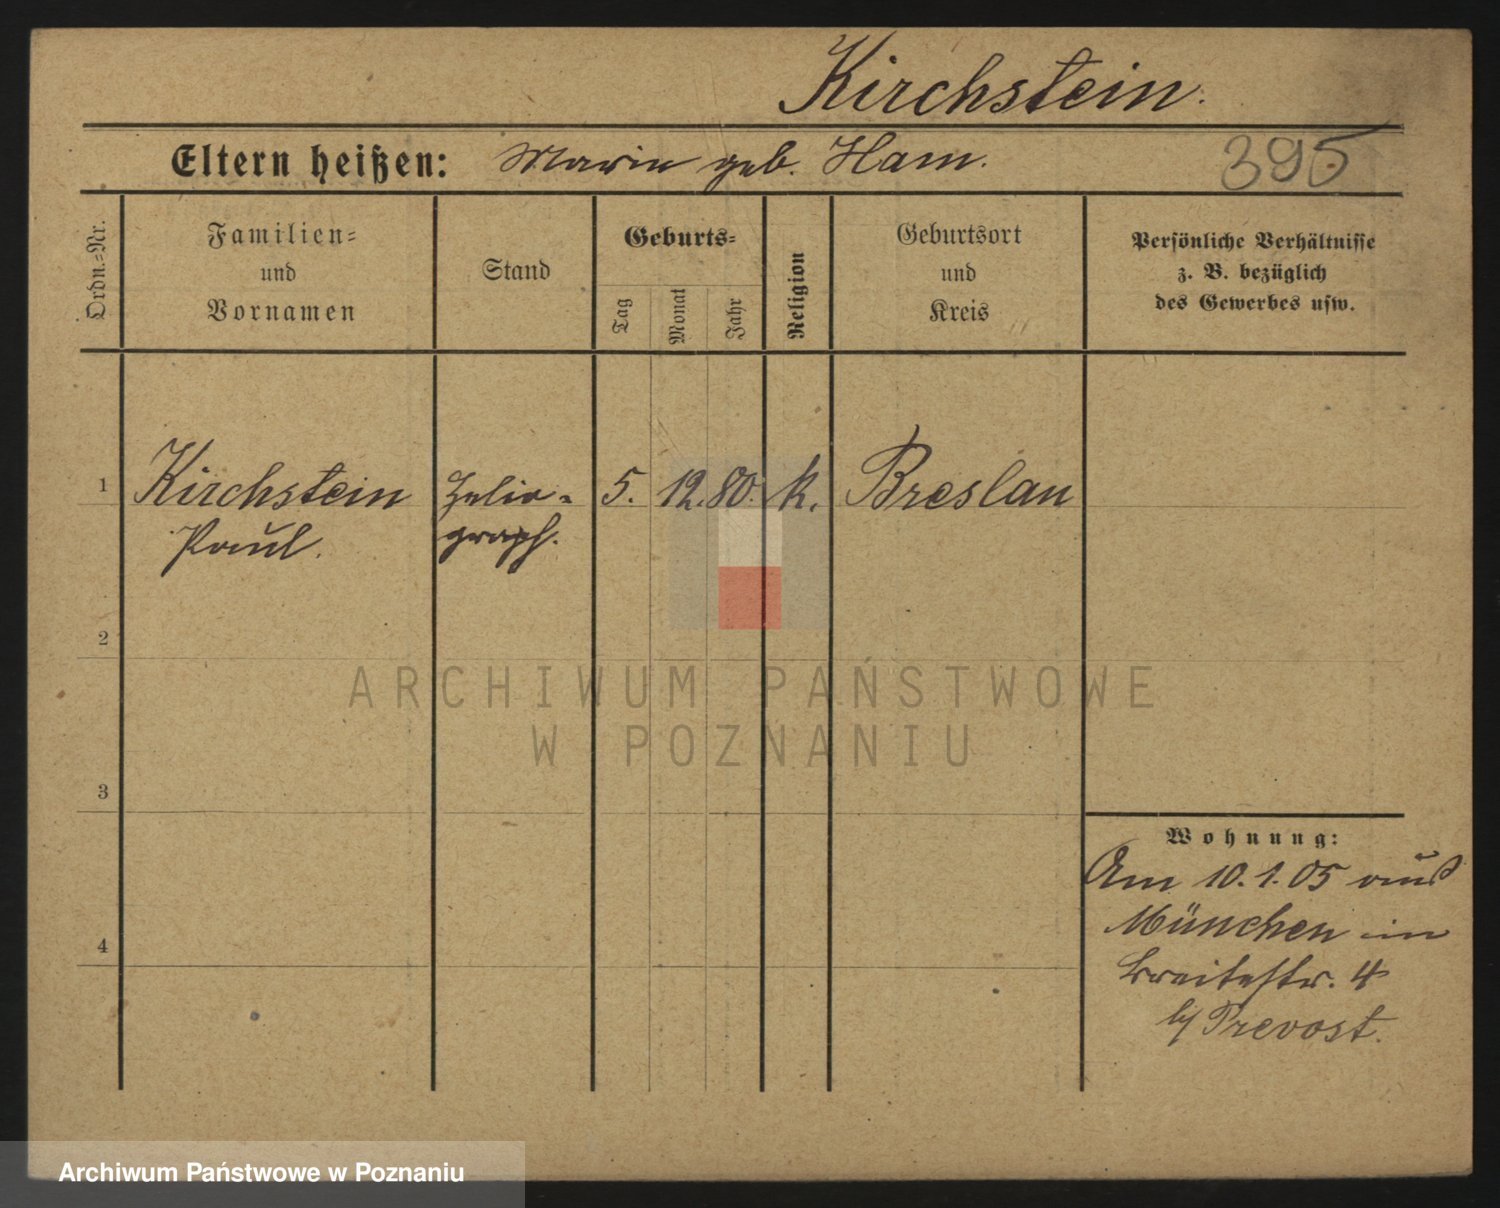 Kirchstein.
Eltern heißen: Marie geb. Ham.
395
Ordn.=Nr.
Familien=
und
Vornamen
Stand
Geburts=
Tag
Monat
Jahr
Religion
Geburtsort
und
Kreis
Persönliche Verhältnisse
z. B. bezüglich
des Gewerbes usw.
1 Kirchstein Helio= 5. 12. 80. k. Breslau
Paul. graph.
2
3
4
Wohnung:
Am 10.1.05 aus
München in
Breitestr. 4
b/ Prevost.
ARCHIWUM PAŃSTWOWE
W POZNANIU
Archiwum Państwowe w Poznaniu